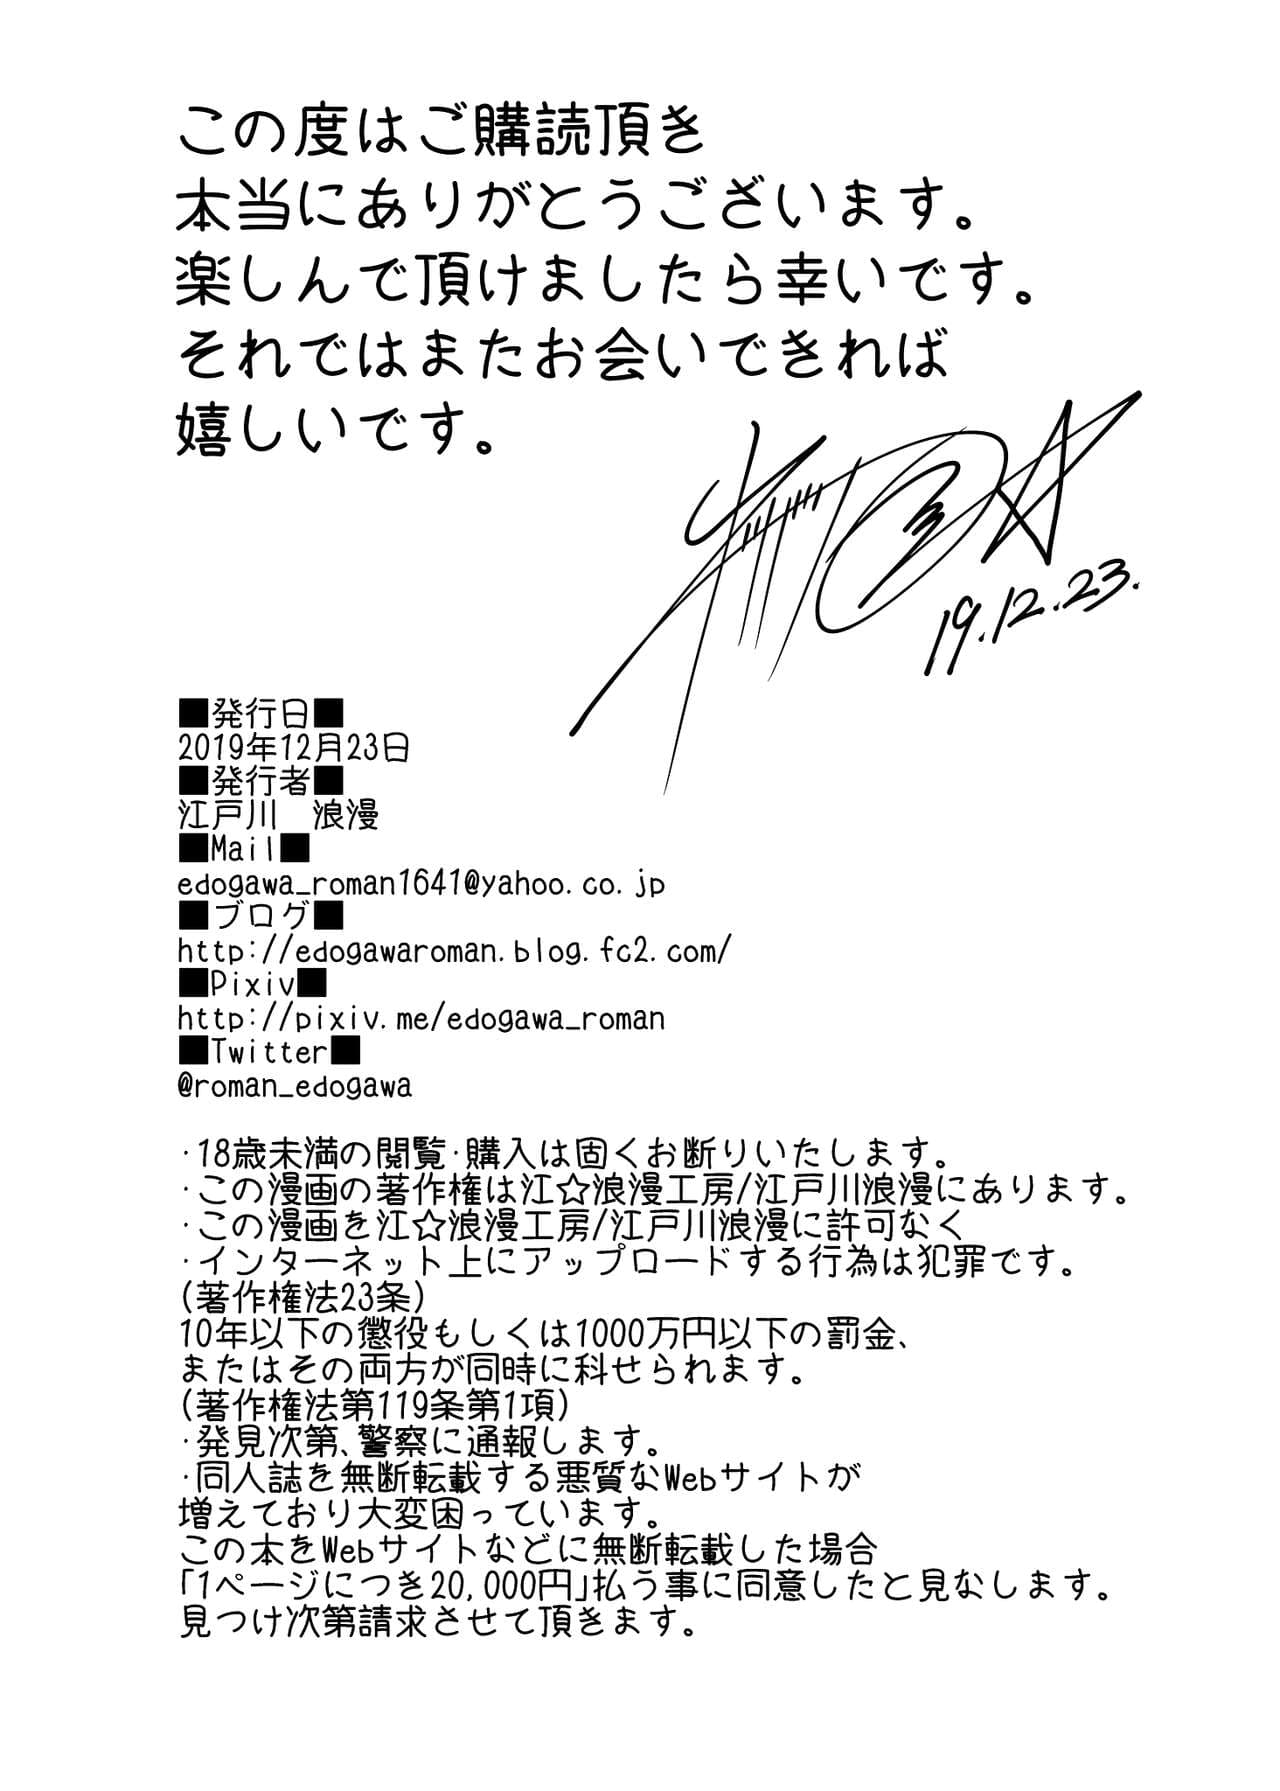 この度はご購読頂き
本当にありがとうございます。
楽しんで頂けましたら幸いです。
それではまたお会いできれば
嬉しいです。
19.12.23.
■発行日■
2019年12月23日
■発行者■
江戸川　浪漫
■Mail■
edogawa_roman1641@yahoo.co.jp
■ブログ■
http://edogawaroman.blog.fc2.com/
■Pixiv■
http://pixiv.me/edogawa_roman
■Twitter■
@roman_edogawa
・18歳未満の閲覧・購入は固くお断りいたします。
・この漫画の著作権は江☆浪漫工房/江戸川浪漫にあります。
・この漫画を江☆浪漫工房/江戸川浪漫に許可なく
・インターネット上にアップロードする行為は犯罪です。
(著作権法23条)
10年以下の懲役もしくは1000万円以下の罰金、
またはその両方が同時に科せられます。
(著作権法第119条第1項)
・発見次第、警察に通報します。
・同人誌を無断転載する悪質なWebサイトが
増えており大変困っています。
この本をWebサイトなどに無断転載した場合
「1ページにつき20,000円」払う事に同意したと見なします。
見つけ次第請求させて頂きます。